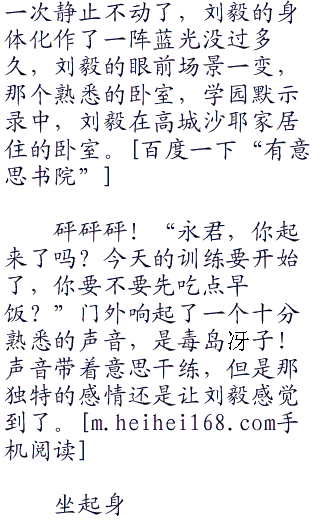 一次静止不动了，刘毅的身
体化作了一阵蓝光没过多
久，刘毅的眼前场景一变，
那个熟悉的卧室，学园默示
录中，刘毅在高城沙耶家居
住的卧室。[百度一下“有意
思书院”]
砰砰砰！“永君，你起
来了吗？今天的训练要开始
了，你要不要先吃点早
饭？”门外响起了一个十分
熟悉的声音，是毒岛冴子！
声音带着意思干练，但是那
独特的感情还是让刘毅感觉
到了。[m.heihei168.com手
机阅读]
坐起身